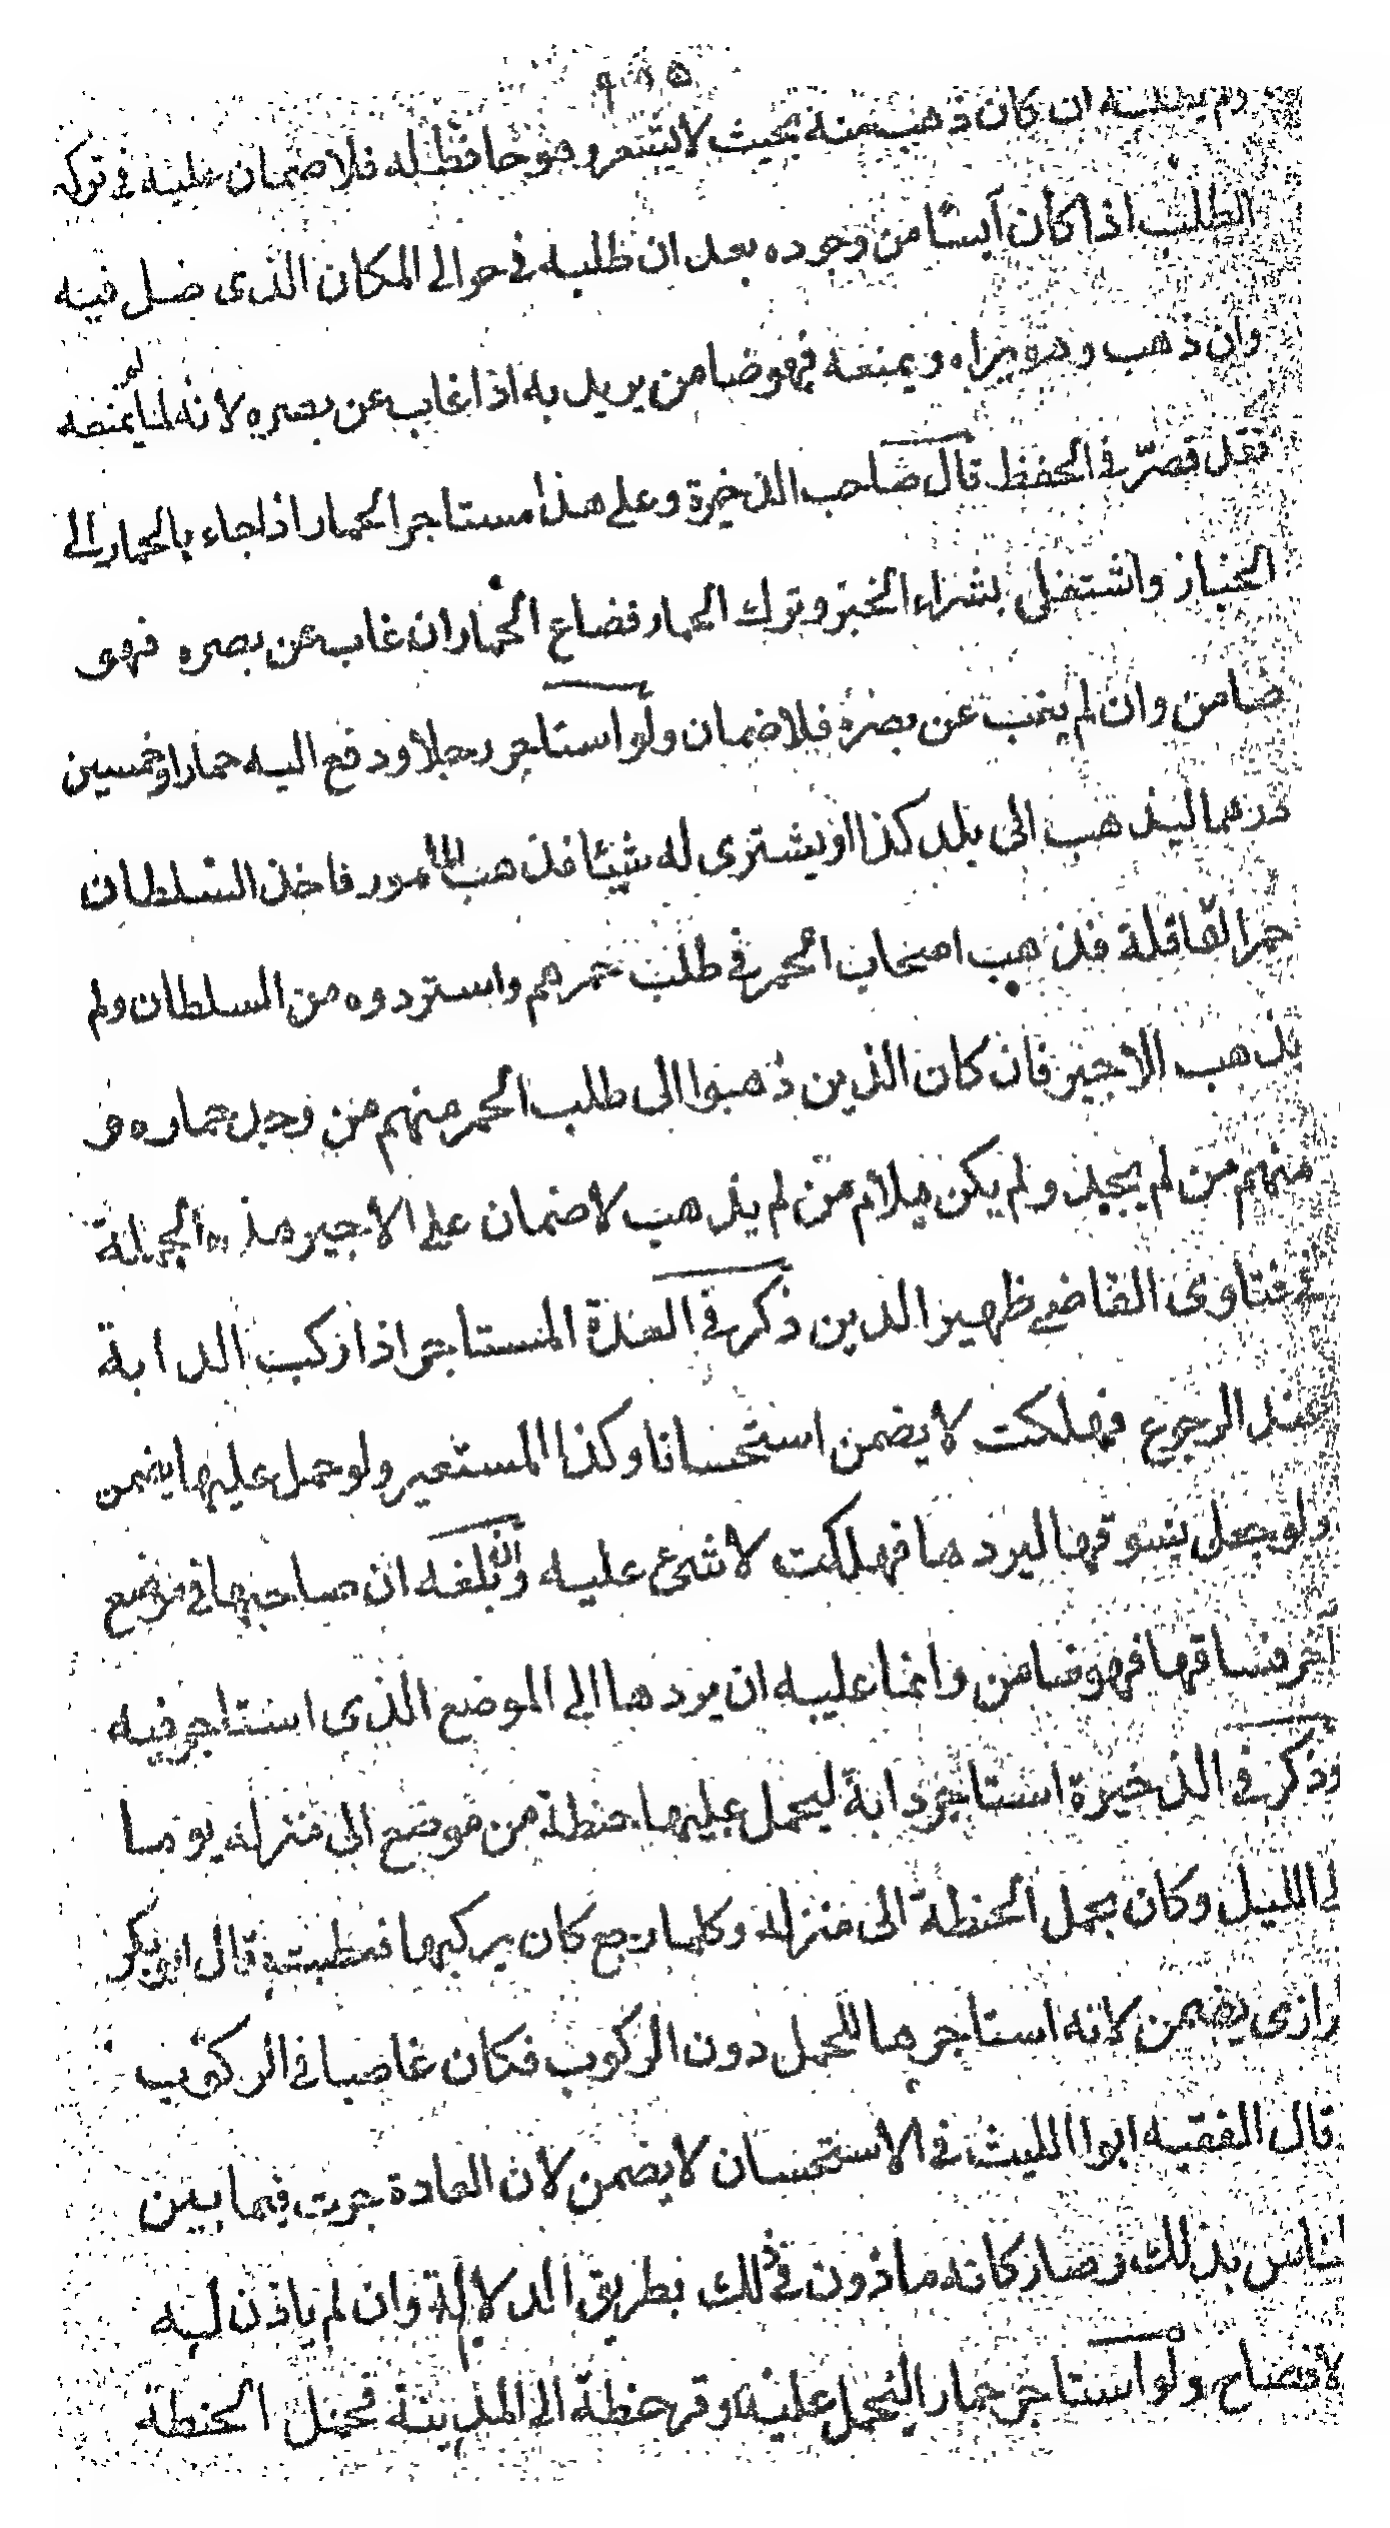 ولم يطلبه ان كان ذهب منه بحيث لا يشعر وهو حافظ له فلا ضمان عليه فى تركه
الطلب اذا كان آيسا من وجوده بعد ان طلبه فى حوالى المكان الذى ضل فيه
وان ذهب وهو يراه ويمنعه فهو ضامن يريد به اذا غاب عن بصره لانه لما لم يمنعه
فقد قصر فى الحفظ قال صاحب الذخيرة وعلى هذا مستاجر الحمار اذا جاء بالحمار الى
الخباز واشتغل بشراء الخبز وترك الحمار فضاع الحمار ان غاب عن بصره فهو
ضامن وان لم يغب عن بصره فلا ضمان ولو استاجر رجلا ودفع اليه حمارا وخمسين
درهما ليذهب الى بلد كذا او يشترى له شيئا فذهب المامور فاخذ السلطان
حمر القافلة فذهب اصحاب الحمر فى طلب حمرهم واستردوه من السلطان ولم
يذهب الاجير فان كان الذين ذهبوا الى طلب الحمر منهم من وجد حماره و
منهم من لم يجد ولم يكن يلام من لم يذهب لا ضمان على الاجير هذه الجملة
فى فتاوى القاضى ظهير الدين ذكر فى العدة المستاجر اذا ركب الدابة
عند الرجوع فهلكت لا يضمن استحسانا وكذا المستعير ولو حمل عليها يضمن
ولو جعل يسوقها ليردها فهلكت لا شئ عليه وان بلغه ان صاحبها فى موضع
اخر فساقها فهو ضامن وانما عليه ان يردها الى الموضع الذى استاجر فيه
وذكر فى الذخيرة استاجر دابة ليحمل عليها حنطة من موضع الى منزله يوما
الى الليل وكان يحمل الحنطة الى منزله وكلما رجع كان يركبها فعطبت قال ابو بكر
الرازى يضمن لانه استاجرها للحمل دون الركوب فكان غاصبا فى الركوب
قال الفقيه ابوا الليث فى الاستحسان لا يضمن لان العادة جرت فيما بين
الناس بذلك وصار كانه ماذون فى ذلك بطريق الدلالة وان لم ياذن له
لافصاح ولو استاجر حمارا ليحمل عليه وقر حنطة الى المدينة فحمل الحنطة